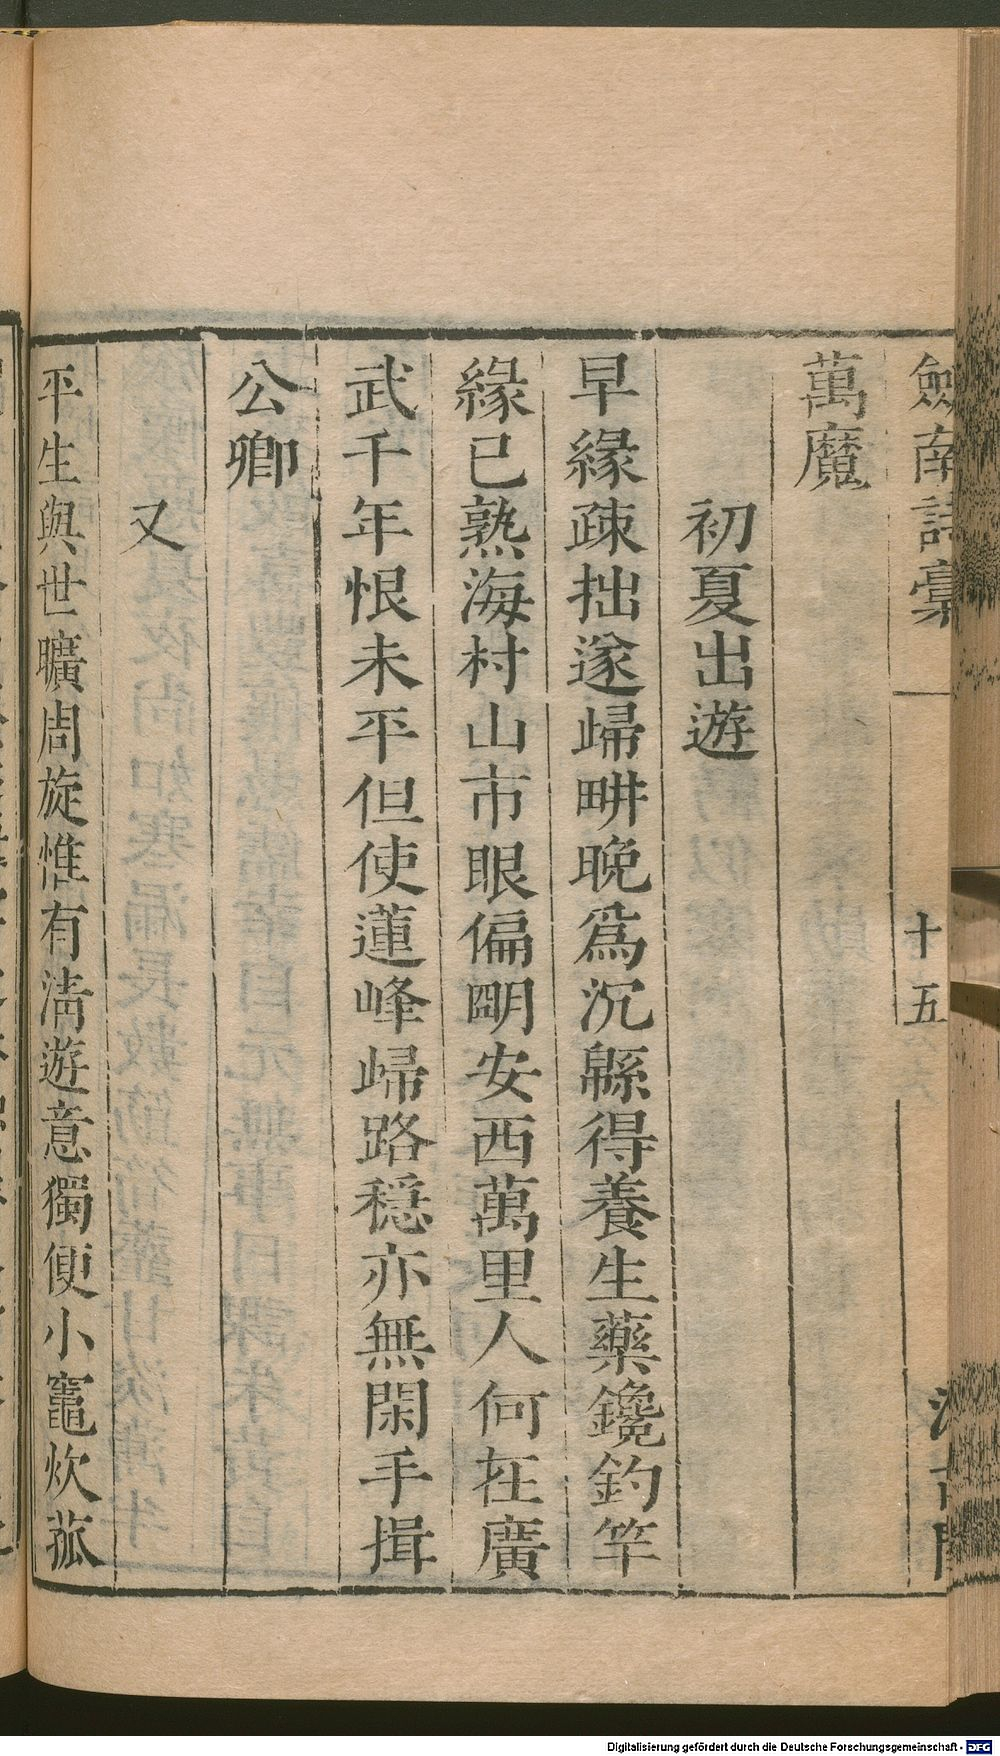 劍南詩稾
十五
萬魔
初夏出遊
早緣疎拙遂歸畊晚爲沉緜得養生藥鑱釣竿
緣已熟海村山市眼偏明安西萬里人何在廣
武千年恨未平但使蓮峰歸路穩亦無閑手揖
公卿
又
平生與世曠周旋惟有淸遊意獨便小竈炊菰
Digitalisierung gefördert durch die Deutsche Forschungsgemeinschaft - DFG